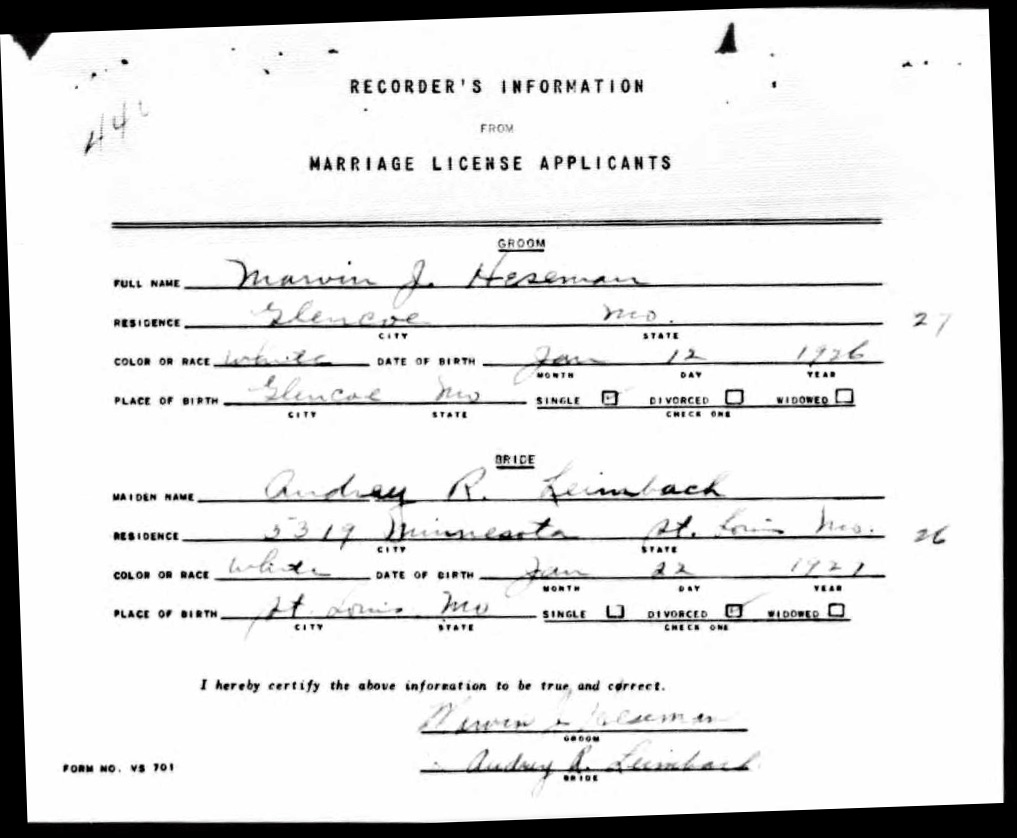 RECORDER'S INFORMATION
FROM
MARRIAGE LICENSE APPLICANTS
GROOM
FULL NAME Marvin J. Heseman
RESIDENCE Glencoe Mo. 27
CITY STATE
COLOR OR RACE White DATE OF BIRTH Jan 12 1926
MONTH DAY YEAR
PLACE OF BIRTH Glencoe Mo SINGLE DIVORCED WIDOWED
CITY STATE CHECK ONE
BRIDE
MAIDEN NAME Audrey R. Leimbach
RESIDENCE 5319 Minnesota St. Louis Mo. 26
CITY STATE
COLOR OR RACE White DATE OF BIRTH Jan 22
MONTH DAY YEAR
PLACE OF BIRTH St. Louis Mo SINGLE DIVORCED WIDOWED
CITY STATE CHECK ONE
I hereby certify the above information to be true and correct.
Marvin J Heseman
GROOM
Audrey R. Leimbach
FORM NO. VS 701 BRIDE